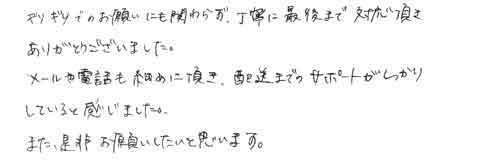 ギリギリでのお願いにも関わらず、丁寧に最後まで対応頂き
ありがとうございました。
メールや電話も細めに頂き、配送までのサポートがしっかり
していると感じました。
また、是非お願いしたいと思います。